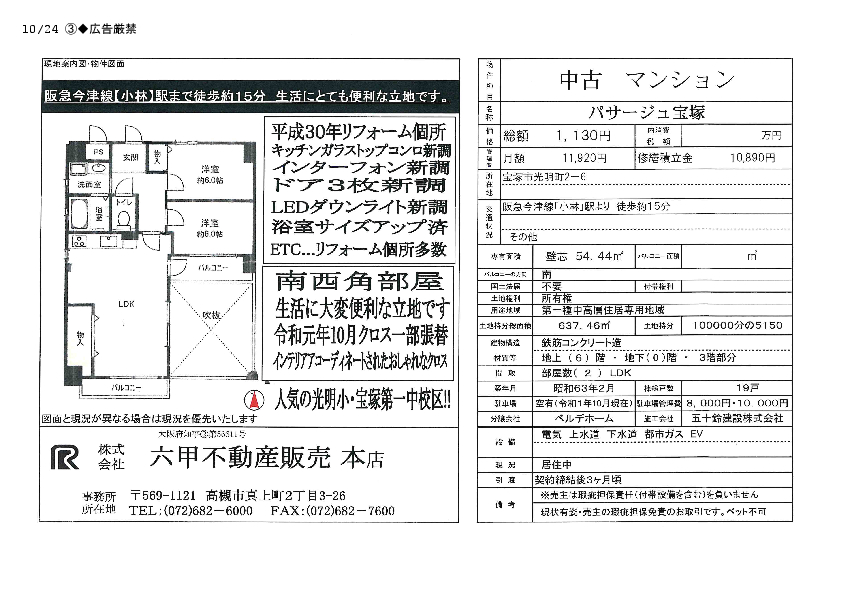 10/24 ③◆広告厳禁
現地案内図・物件図面
阪急今津線【小林】駅まで徒歩約15分 生活にとても便利な立地です。
平成30年リフォーム個所
キッチンガラストップコンロ新調
インターフォン新調
ドア3枚新調
LEDダウンライト新調
浴室サイズアップ済
ETC...リフォーム個所多数
南西角部屋
生活に大変便利な立地です
令和元年10月クロス一部張替
インテリアコーディネートされたおしゃれなクロス
人気の光明小・宝塚第一中校区!!
PS
玄関
物入
洋室
約6.0帖
洗面室
浴室
トイレ
洋室
約6.0帖
バルコニー
LDK
吹抜
物入
バルコニー
図面と現況が異なる場合は現況を優先いたします
株式会社 六甲不動産販売 本店
事務所所在地 〒569-1121 高槻市真上町2丁目3-26
TEL:(072)682-6000 FAX:(072)682-7600
物件項目 中古 マンション
名称 パサージュ宝塚
価格 総額 1,130円 内消費税額 万円
管理費 月額 11,920円 修繕積立金 10,890円
所在地 宝塚市光明町2-6
交通状況 阪急今津線「小林」駅より 徒歩約15分
その他
専有面積 壁芯 54.44㎡ バルコニー面積 ㎡
バルコニーの方位 南
国土法届 不要 付帯権利
土地権利 所有権
用途地域 第一種中高層住居専用地域
土地持分総面積 637.46㎡ 土地持分 100000分の5150
建物構造 鉄筋コンクリート造
材質等 地上(6)階・地下(0)階・3階部分
間取 部屋数(2)LDK
築年月 昭和63年2月 総戸数 19戸
駐車場 空有(令和1年10月現在) 駐車場管理費 8,000円・10,000円
分譲会社 ベルデホーム 施工会社 五十鈴建設株式会社
設備 電気 上水道 下水道 都市ガス EV
現況 居住中
引渡 契約締結後3ヶ月頃
備考 ※売主は瑕疵担保責任(付帯設備を含む)を負いません
現状有姿・売主の瑕疵担保免責のお取引です。ペット不可